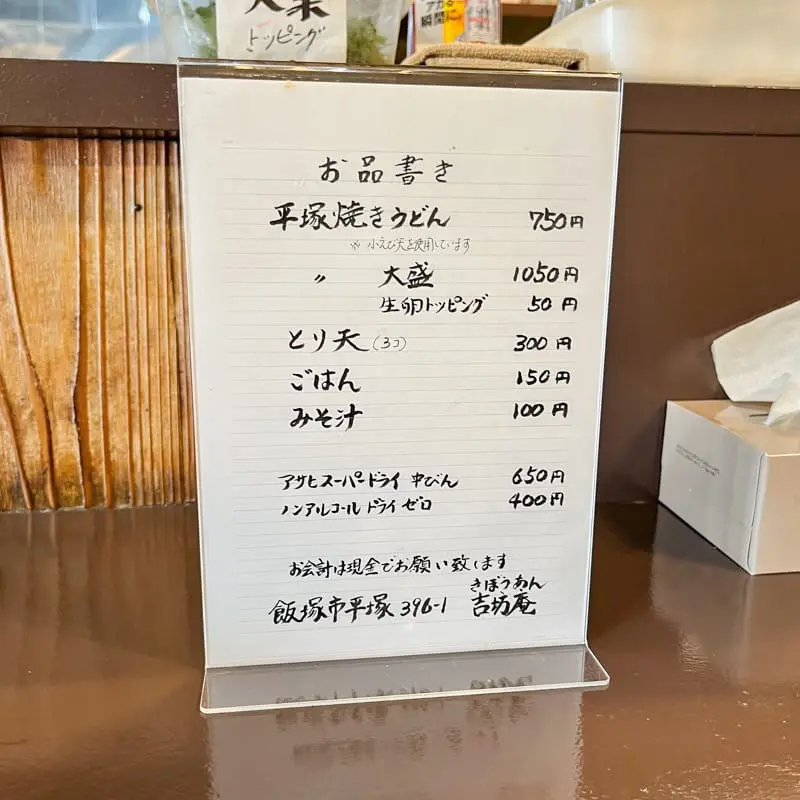 トッピング
お品書き
平塚焼きうどん 750円
※ 小えび天を使用しています
〃 大盛 1050円
生卵トッピング 50円
とり天(3コ) 300円
ごはん 150円
みそ汁 100円
アサヒスーパードライ 中びん 650円
ノンアルコール ドライゼロ 400円
お会計は現金でお願い致します
きぼうあん
飯塚市平塚396-1 吉坊庵